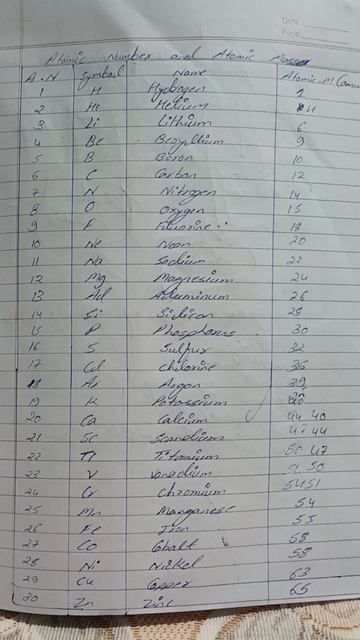 Date
Page
Atomic Number and Atomic Mass
A.N Symbol Name Atomic.M (amu
1 H Hydrogen 1
2 He Helium 4
3 Li Lithium 6
4 Be Beryllium 9
5 B Boron 10
6 C Carbon 12
7 N Nitrogen 14
8 O Oxygen 15
9 F Fluorine 18
10 Ne Neon 20
11 Na Sodium 22
12 Mg Magnesium 24
13 Al Aluminum 26
14 Si Silicon 28
15 P Phosphorus 30
16 S Sulfur 32
17 Cl chlorine 35
18 Ar Argon 39
19 K Potassium
20 Ca Calcium 44 40
21 Sc Scandium 47 44
22 Ti Titanium 50 47
23 V Vanadium 51 50
24 Cr chromium 54 51
25 Mn Manganese 54
26 Fe Iron 55
27 Co Cobalt 58
28 Ni Nickel 58
29 Cu Copper 63
30 Zn Zinc 65